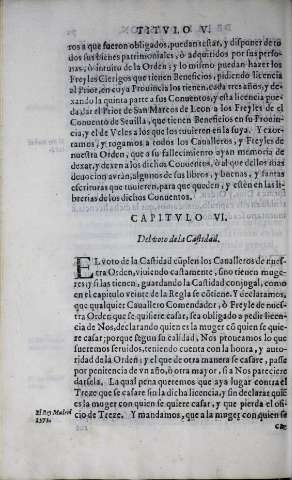 TITVLO V.
ros a que fueron obligados, puedan testar, y disponer de to
dos sus bienes patrimoniales, ò adquiridos por sus perso-
nas, ò fruto de la Orden; y lo mismo puedan hazer los
Freyles Clerigos que tienen Beneficios, pidiendo licencia
al Prior, en cuya Prouincia los tienen, cada tres años, y de-
xando la quinta parte a sus Conuentos, y esta licencia pue-
da dar el Prior de San Marcos de Leon a los Freyles de el
Conuento de Seuilla, que tienen Beneficios en su Prouin-
cia, y el de Veles a los que los tuuieren en la suya. Y exor-
tamos, y rogamos a todos los Caualleros, y Freyles de
nuestra Orden, que a su fallecimiento ayan memoria de
dexar, y dexen a los dichos Conuentos, ò al que dellos mas
deuocion avràn, algunos de sus libros, y buenas, y santas
escrituras que tuuieren, para que queden, y estèn en las li-
brerias de los dichos Conuentos.
CAPITVLO VI.
Del voto de la Castidad.
EL voto de la Castidad cũplen los Caualleros de nues-
tra Orden, viuiendo castamente, sino tienen muge-
res; y si las tienen, guardando la Castidad conjugal, como
en el capitulo veinte de la Regla se cõtiene. Y declaramos,
que qualquier Cauallero Comendador, ò Freyle de nues-
tra Orden que se quisiere casar, sea obligado a pedir licen-
cia de Nos, declarando quien es la muger cõ quien se quie-
re casar; porque segun su calidad, Nos proueamos lo que
fueremos seruidos, teniendo cuenta con la honra, y auto-
ridad de la Orden; y el que de otra manera se casare, passe
por penitencia de vn año, ò otra mayor, si a Nos pareciere
darsela. La qual pena queremos que aya lugar contra el
Treze que se casare sin la dicha licencia, y sin declarar quiẽ
es la muger con quien se quiere casar, y que pierda el ofi-
cio de Treze. Y mandamos, que a la muger con quien se
El Rey Madrid
1573.
ca-